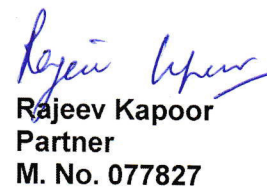 Rajeev Kapoor
Rajeev Kapoor
Partner
M. No. 077827